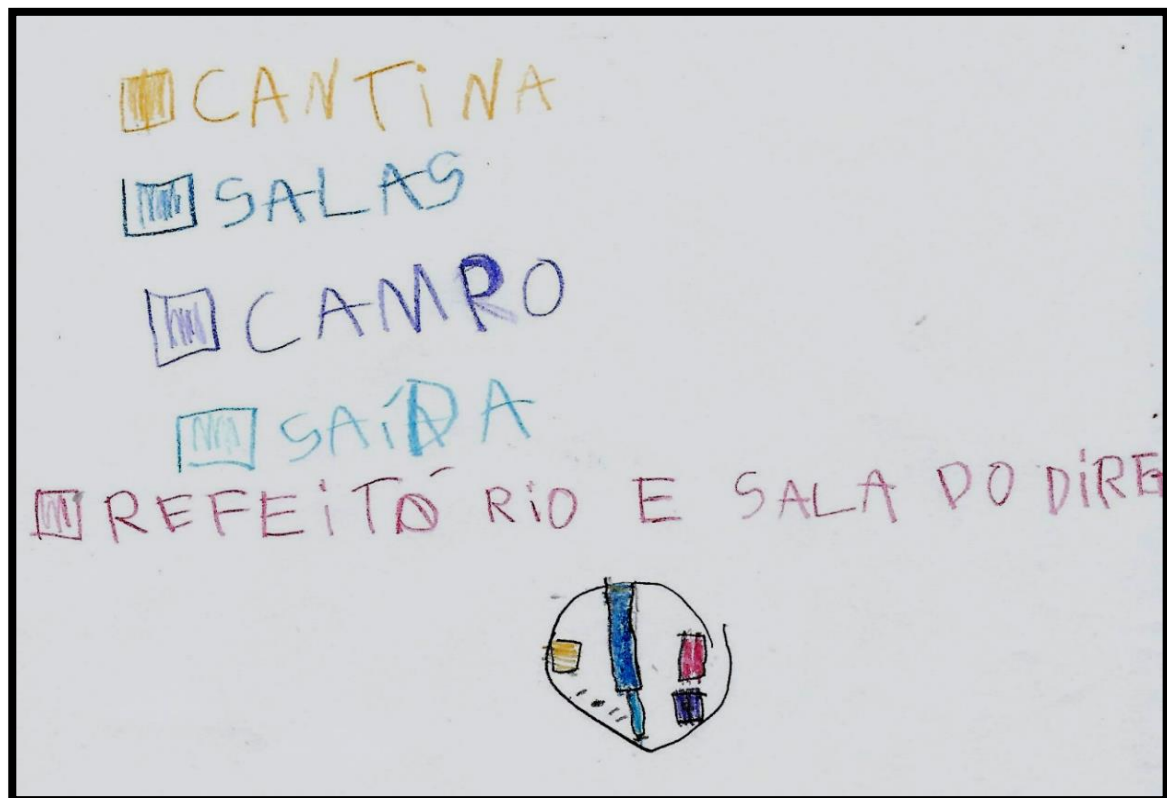 CANTiNA
SALAS
CAMPO
SAÍDA
REFEiTÓRiO E SALA DO DiRE